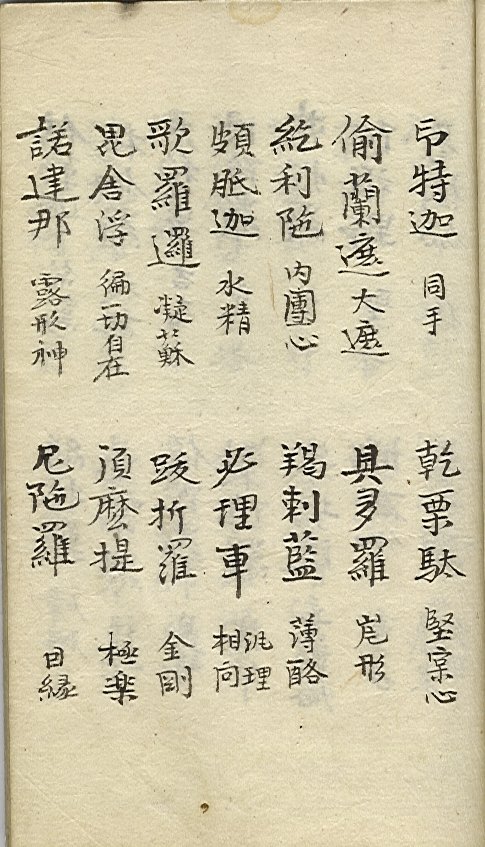 帀特迦 同手 乾栗馱 堅实心
偷蘭遮 大遮 具多羅 㞷形
紇利陁 内團心 羯刺藍 薄酪
頗胝迦 水精 必理車 汎理相向
歌羅邏 凝蘇 跋折羅 金剛
毘舍浮 徧一切自在 須麼提 極楽
諾建那 露形神 尼陁羅 日縁